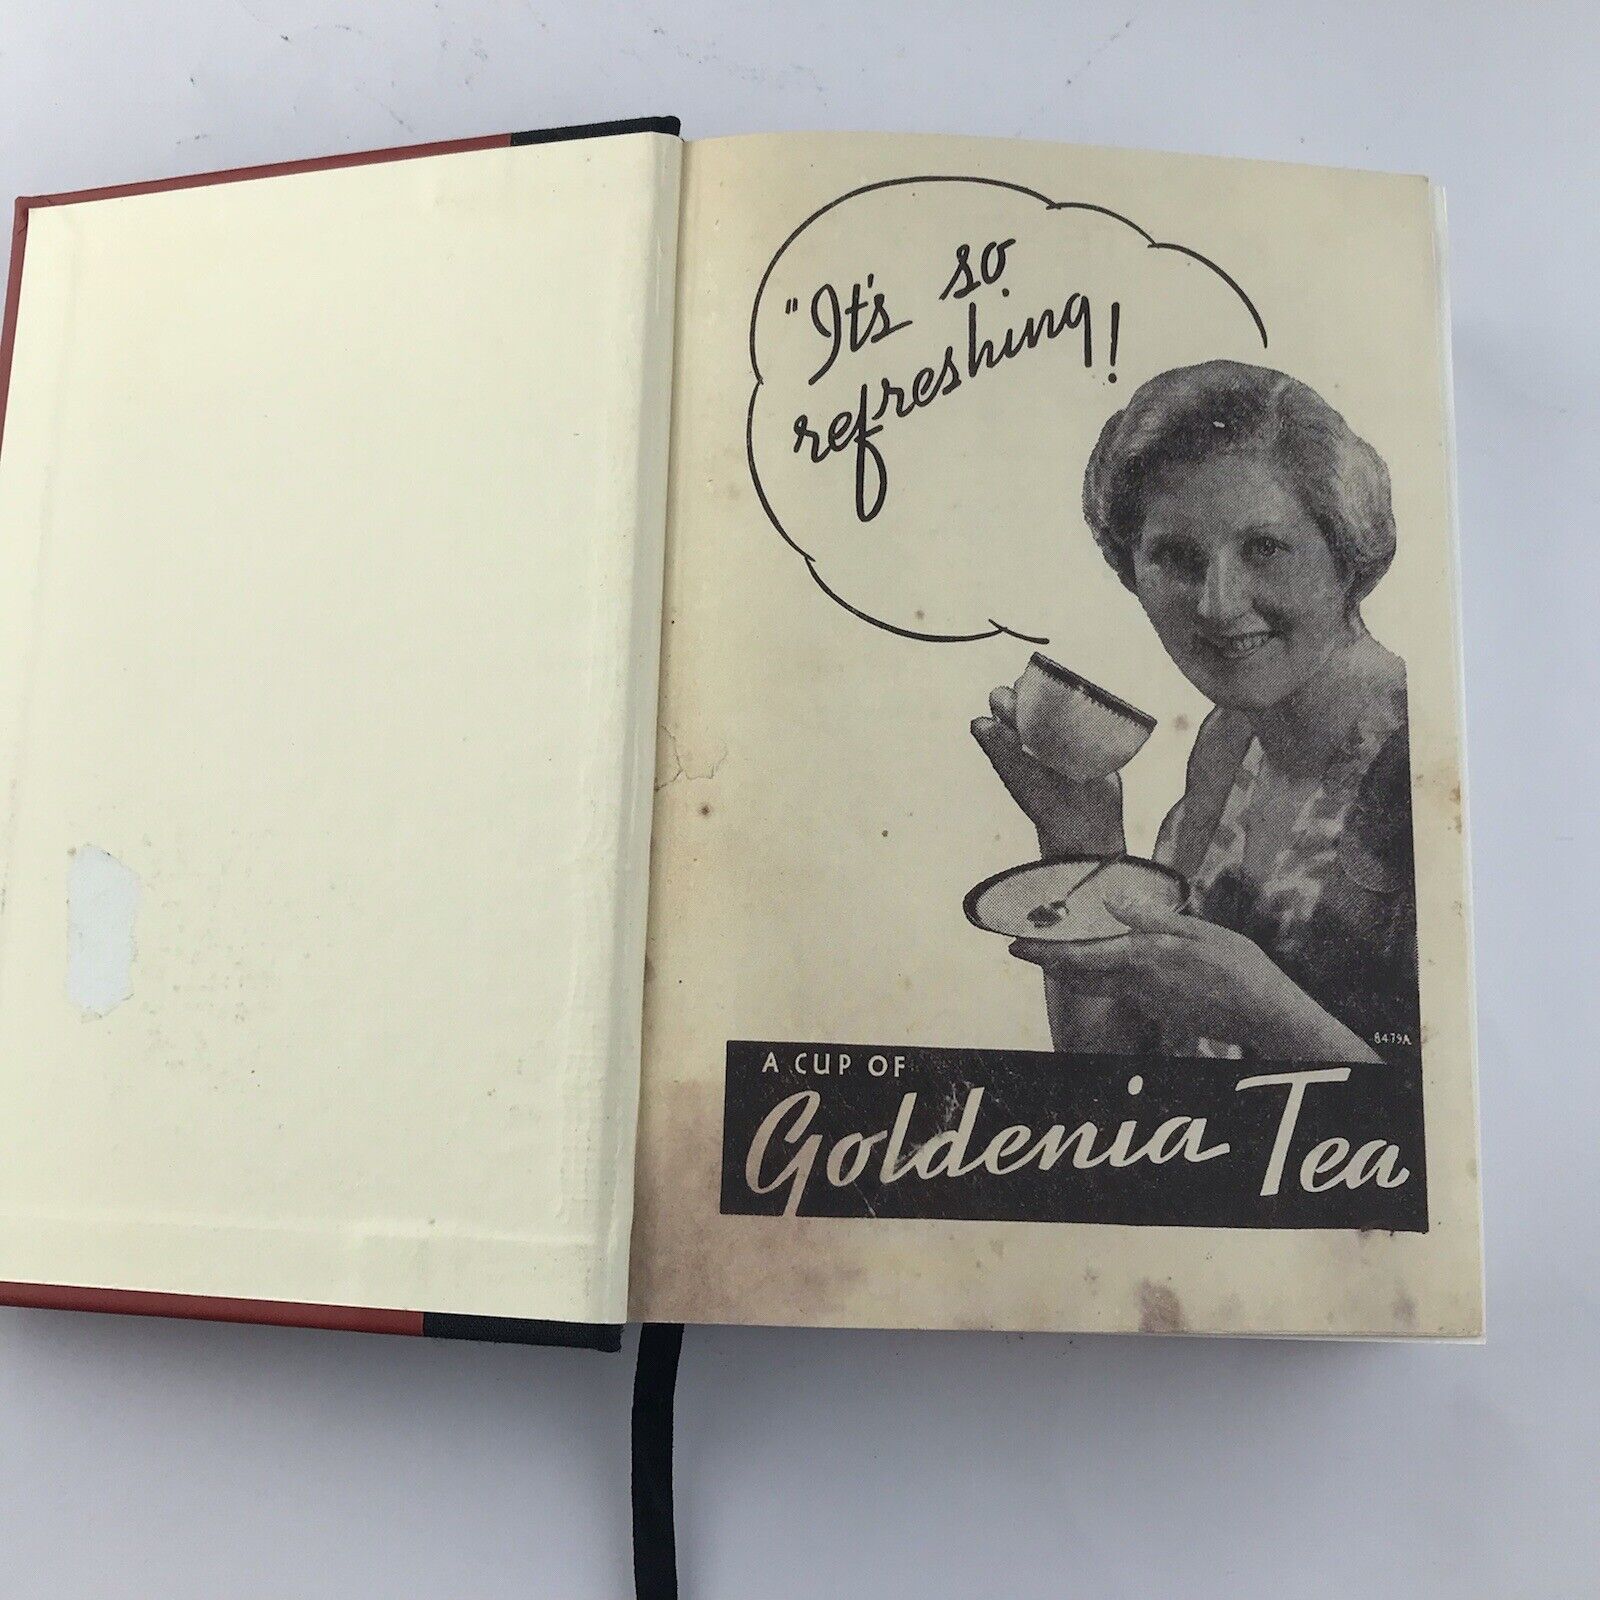 "It's so
refreshing!
8479A
A CUP OF
Goldenia Tea